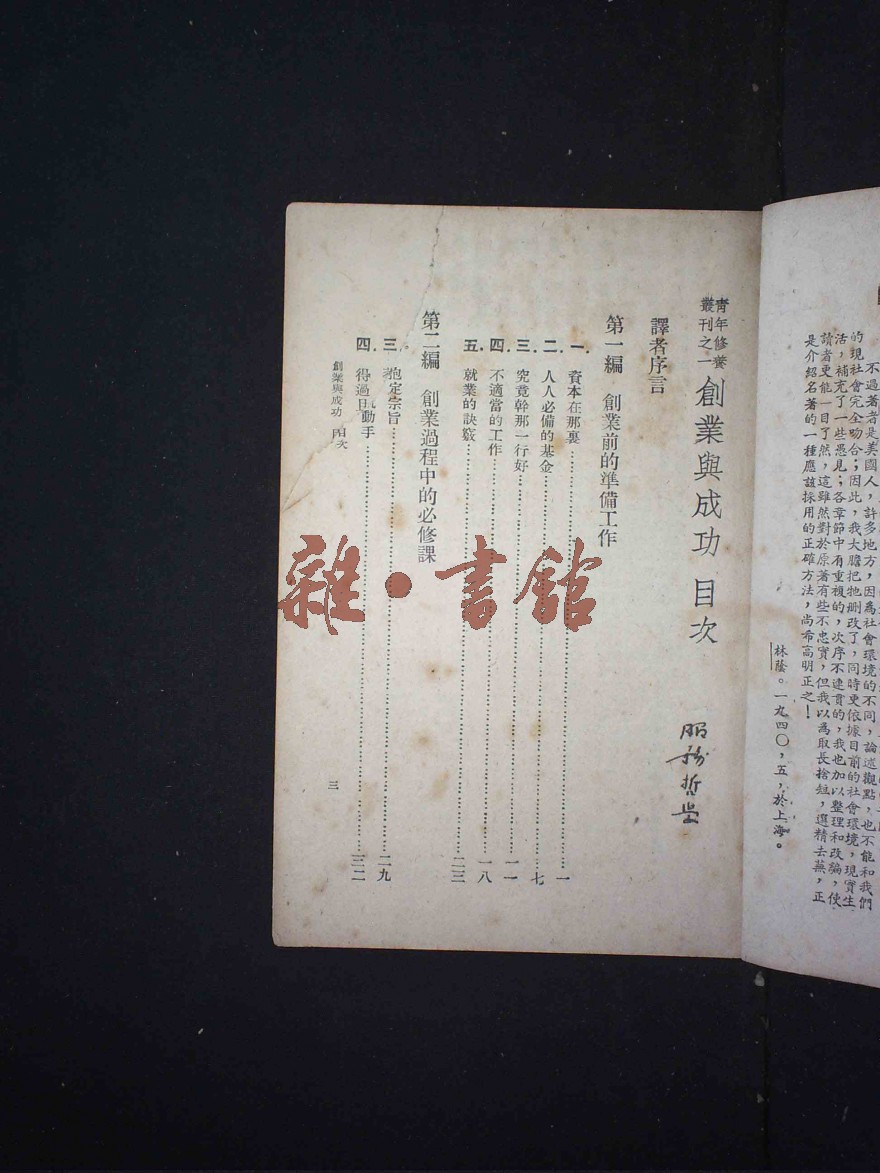 不過著者是美國人，許多地方，因爲社會環境的不同，論述觀點，也不能和我們
的現社會完全吻合；因此，我大膽把牠删改了，同時更依據目前的社會環境，現實生
活，補充了一些愚見；各章節中有重複的，次序不連貫的，我也加以整理和改編，使
讀者更能一目了然，這雖然對於原著有些不忠實，但我以爲取長捨短，選精去蕪，正
是介紹名著的一種應該採用的正確方法，尚希高明正之！
林蔭。一九四〇，五，於上海。
青年修養
叢刊之一
創業與成功 目次
譯者序言
第一編 創業前的準備工作
一．資本在那裏……一
二．人人必備的基金……七
三．究竟幹那一行好……一一
四．不適當的工作……一八
五．就業的訣竅……二三
第二編 創業過程中的必修課
三．抱定宗旨……二九
四．得過且動手……三二
創業與成功 目次
三
雜·書館